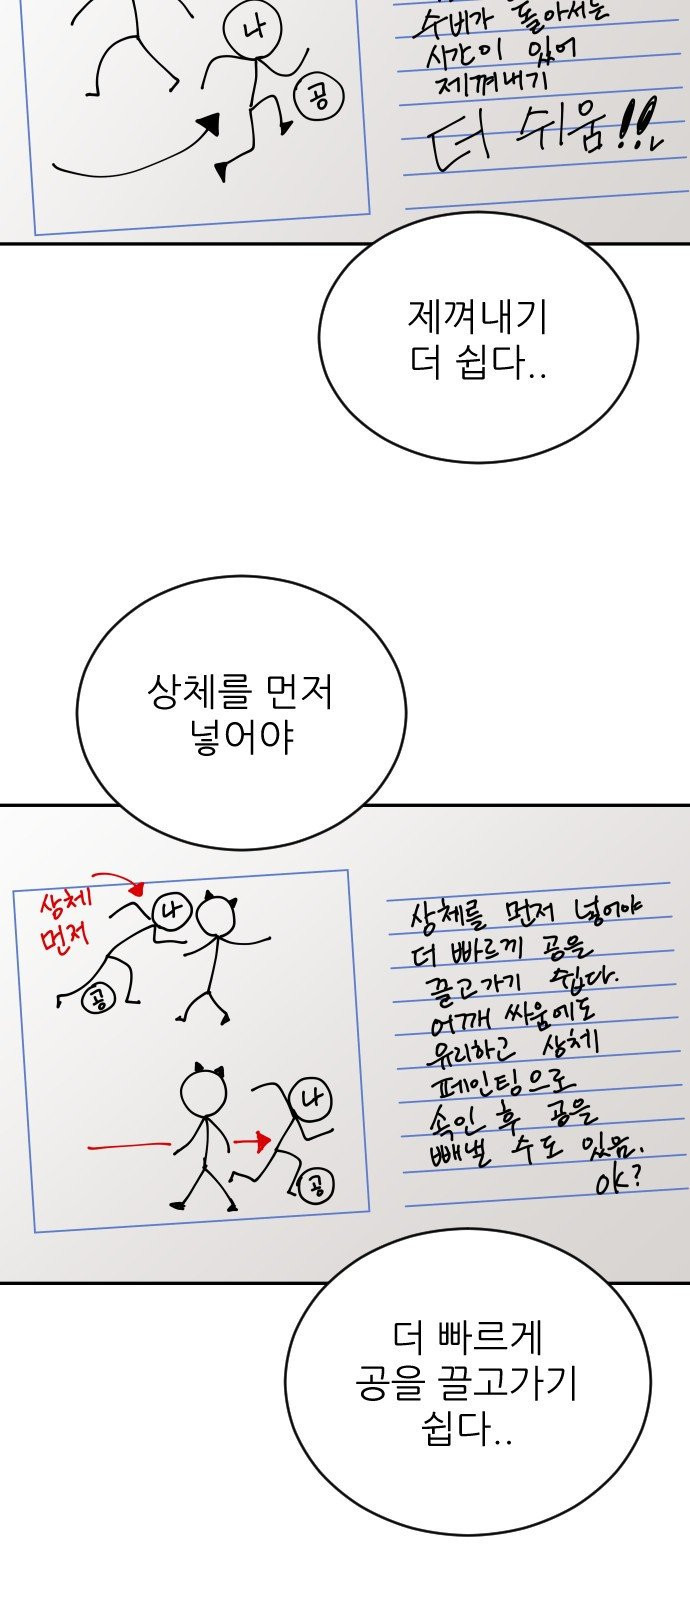 나
공
수비가 돌아서는
시간이 있어
제껴내기
더 쉬움!!
제껴내기
더 쉽다..
상체를 먼저
넣어야
상체
먼저
나
공
나
공
상체를 먼저 넣어야
더 빠르끼 공을
끌고가기 쉽다.
어깨 싸움에도
유리하고 상체
페인팅으로
속인 후 공을
빼낼 수도 있음.
OK?
더 빠르게
공을 끌고가기
쉽다..